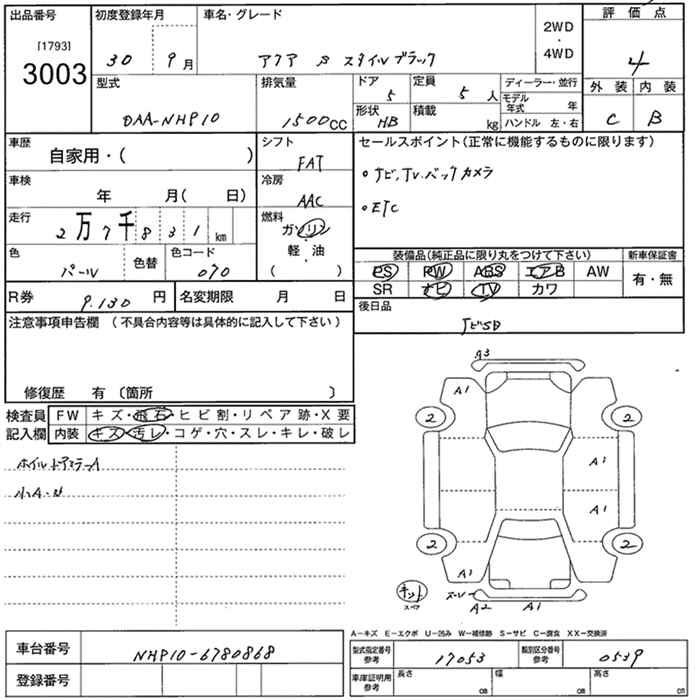 出品番号 初度登録年月 車名・グレード 評価点
[1793] 2WD
3003 30 9月 アクア S スタイルブラック ・ 4
4WD
型式 排気量 ドア 定員 ディーラー・並行 外装 内装
5 5 人 モデル年式 年
DAA-NHP10 1500CC 形状 HB 積載 kg ハンドル 左・右 C B
車歴 自家用・( ) シフト FAT セールスポイント(正常に機能するものに限ります)
車検 年 月( 日) 冷房 AAC ・ナビ,TV.バックカメラ
走行 2万7千831km 燃料 ガソリン ・ETC
色 パール 色替 色コード 070 軽・油 ( )
装備品(純正品に限り丸をつけて下さい) 新車保証書
PS PW ABS エアB AW 有・無
SR ナビ TV カワ
R券 9.130 円 名変期限 月 日 後日品
ナビSD
注意事項申告欄 (不具合内容等は具体的に記入して下さい)
修復歴 有 (箇所 )
検査員 FW キズ・飛石・ヒビ割・リペア跡・X要
記入欄 内装 キズ・汚レ・コゲ・穴・スレ・キレ・破レ
A1
2 2
A1
A1
2 2
A1
スペア
A2 A1
A-キズ E-エクボ U-凹み W-補修跡 S-サビ C-腐食 XX-交換済
車台番号 NHP10-6780868 型式指定番号参考 17053 類別区分番号参考 0539
登録番号 車庫証明用参考 長さ cm 幅 cm 高さ cm